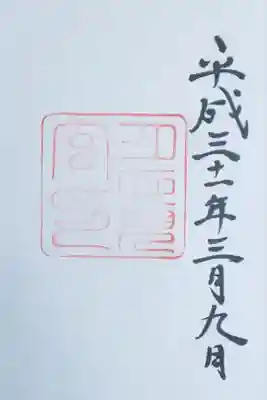 平成三十一年三月九日